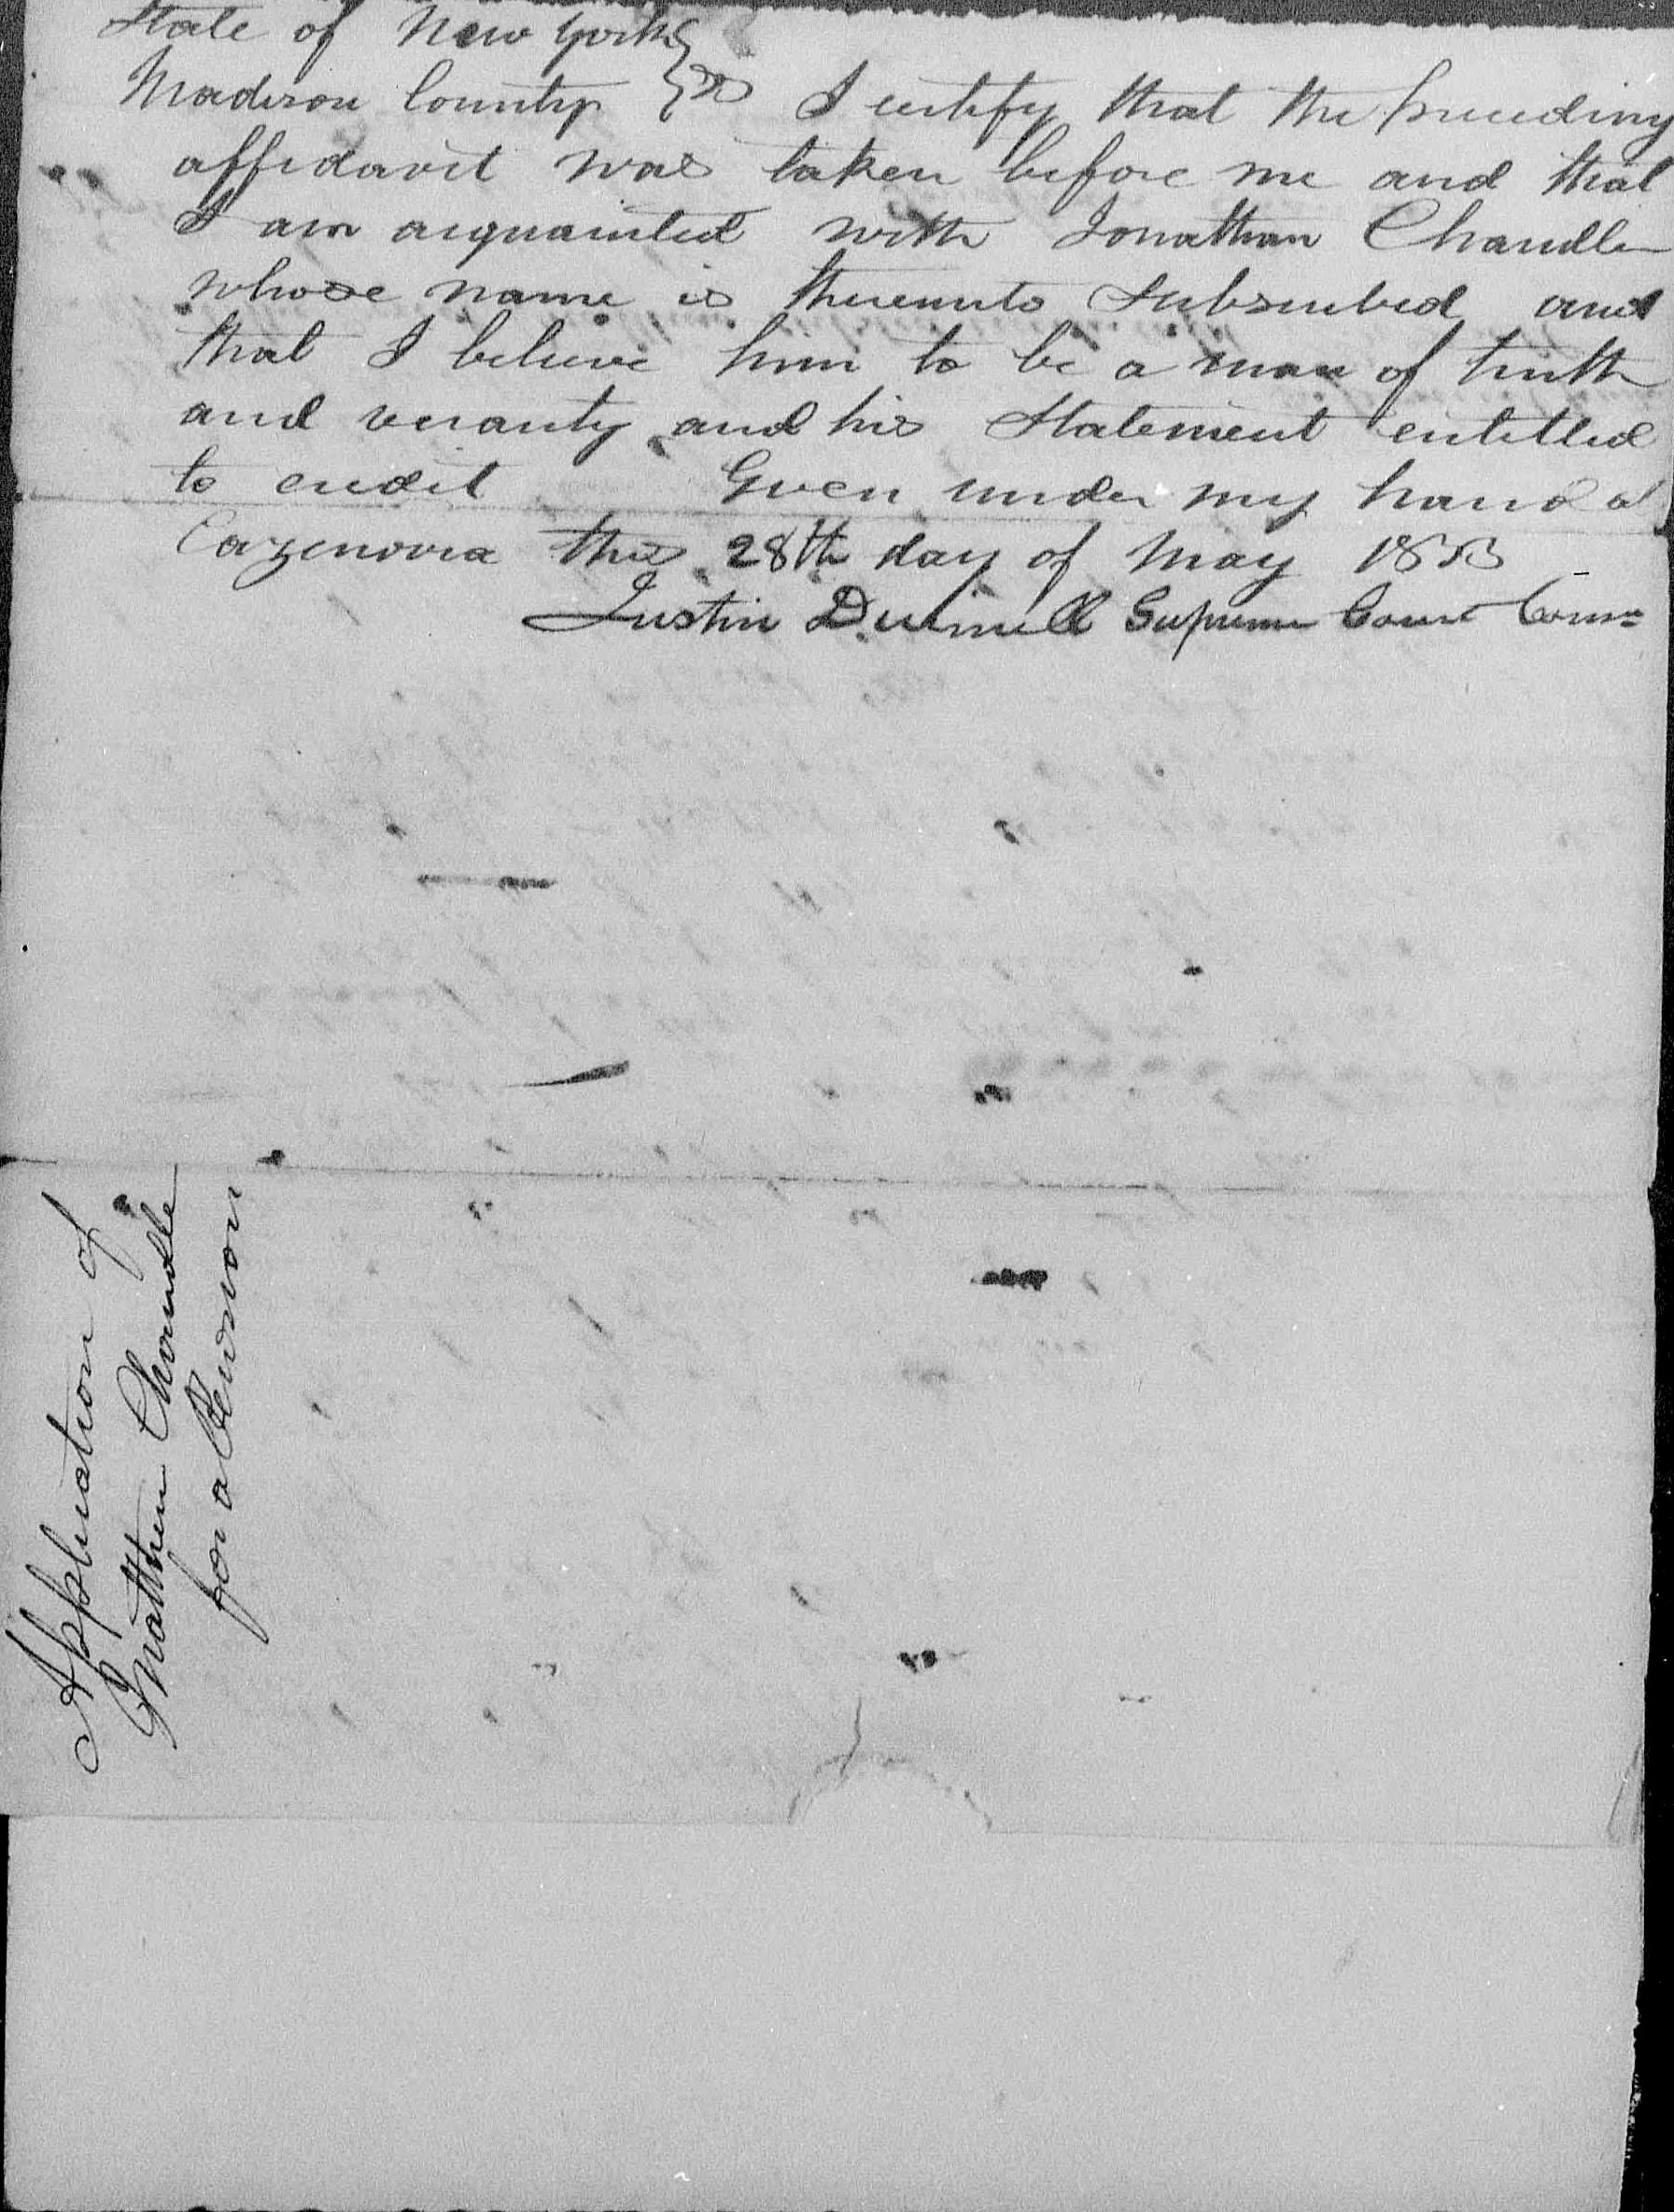 State of New York }
Madison County } ss I certify that the preceeding
affidavit was taken before me and that
I am acquainted with Jonathan Chandler
whose name is thereunto subscribed and
that I believe him to be a man of truth
and veracity and his Statement entitled
to credit Given under my hand at
Cazenovia this 28th day of May
Justin Dwinell Supreme Court Comr
Application of
Matthew Chandler
for a Pension